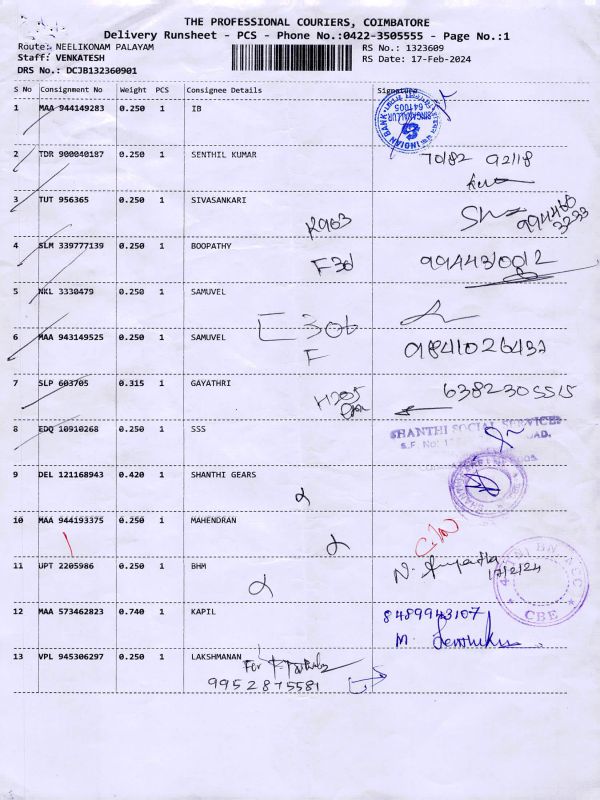 THE PROFESSIONAL COURIERS, COIMBATORE
Delivery Runsheet - PCS - Phone No.:0422-3505555 - Page No.:1
Route: NEELIKONAM PALAYAM
RS No.: 1323609
Staff: VENKATESH
RS Date: 17-Feb-2024
DRS No.: DCJB132360901
S No Consignment No Weight PCS Consignee Details Signature
1 MAA 944149283 0.250 1 IB
INDIAN BANK
SINGANALLUR
641005
2 TDR 900040187 0.250 1 SENTHIL KUMAR
70182 92118
3 TUT 956365 0.250 1 SIVASANKARI
K903
994460
3233
4 SLM 339777139 0.250 1 BOOPATHY
F30
9944310012
5 NKL 3330479 0.250 1 SAMUVEL
E306
6 MAA 943149525 0.250 1 SAMUVEL
F
9841026437
7 SLP 603705 0.315 1 GAYATHRI
H205
6382305515
8 EDQ 10910268 0.250 1 SSS
SHANTHI SOCIAL SERVICES
9 DEL 121168943 0.420 1 SHANTHI GEARS
10 MAA 944193375 0.250 1 MAHENDRAN
11 UPT 2205986 0.250 1 BHM
17/2/24
CBE
12 MAA 573462823 0.740 1 KAPIL
8489943107
M.
13 VPL 945306297 0.250 1 LAKSHMANAN
For
9952875581